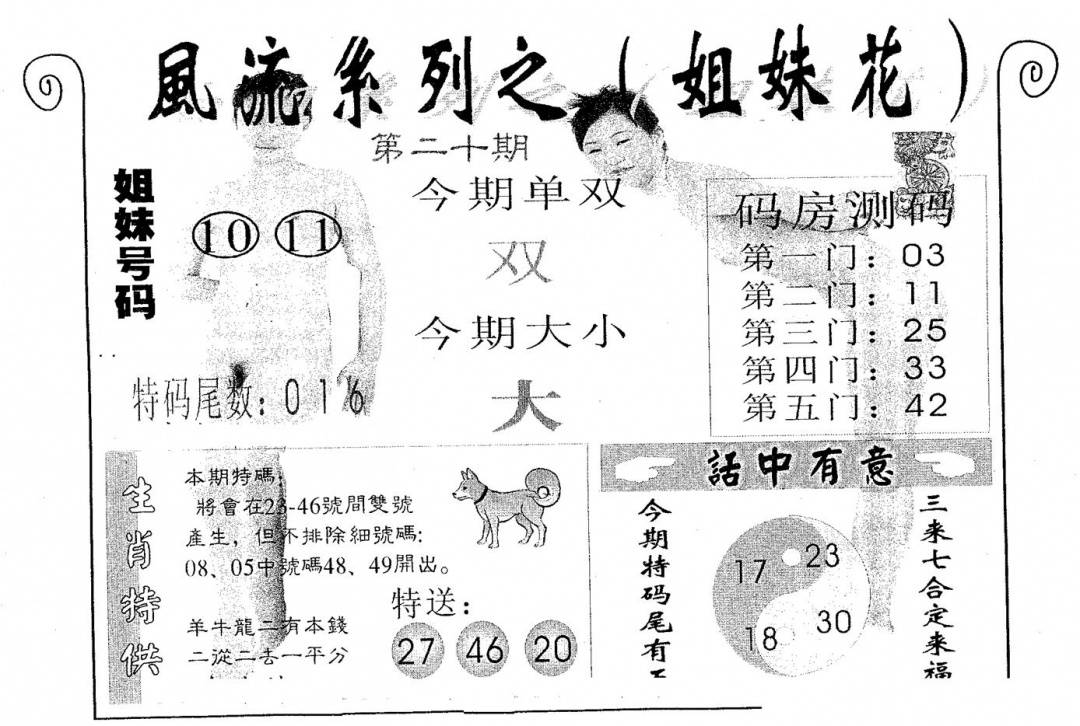 風流系列之（姐妹花）
第二十期
姐妹号码
10 11
今期单双
双
今期大小
大
特码尾数：016
码房测码
第一门：03
第二门：11
第三门：25
第四门：33
第五门：42
生肖特供
本期特碼：
將會在23-46號間雙號
產生，但不排除細號碼：
08、05中號碼48、49開出。
羊牛龍二有本錢
二從二去一平分
特送：
27 46 20
話中有意
三来七合定来福
17 23
18 30
今期特码尾有